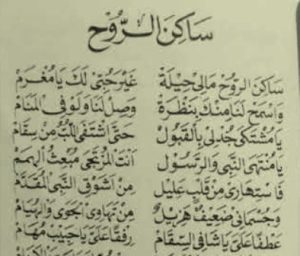 سَاكِنَ الرُّوْحِ
سَاكِنَ الرُّوْحِ مَالِيْ حِيْلَةْ غَيْرَ حُبِّيْ لَكَ يَا مُغْرَمْ
وَاسْمَحْ لَنَا مِنْكَ بِنَظْرَةْ وَصِلْ لَنَا وَلَوْ فِي الْمَنَامْ
يَا مُشْتَكَى جُدْ لِيْ بِالْقَبُوْلْ حَتَّى اشْتَفَى اللُّبُّ مِنْ سِقَامْ
يَا مُنْتَهَى النَّبِيْ وَالرَّسُوْلْ أَنْتَ الْمُرْتَجَى مَبْعَثُ الْهِمَمْ
مِنْ قَلْبٍ عَلِيْلْ مِنْ شَوْقِ النَّبِيِّ الْمُقَدَّمْ
وَجِسْمَانِيْ ضَعِيْفٌ هَزِيْلْ مِنْ تَهَاوِى الْجَوَى وَالْهُيَامْ
عَطْفًا عَلَيَّ يَا شَافِيَ السَّقَامْ رِفْقًا عَلَيَّ يَا حَبِيْبَ